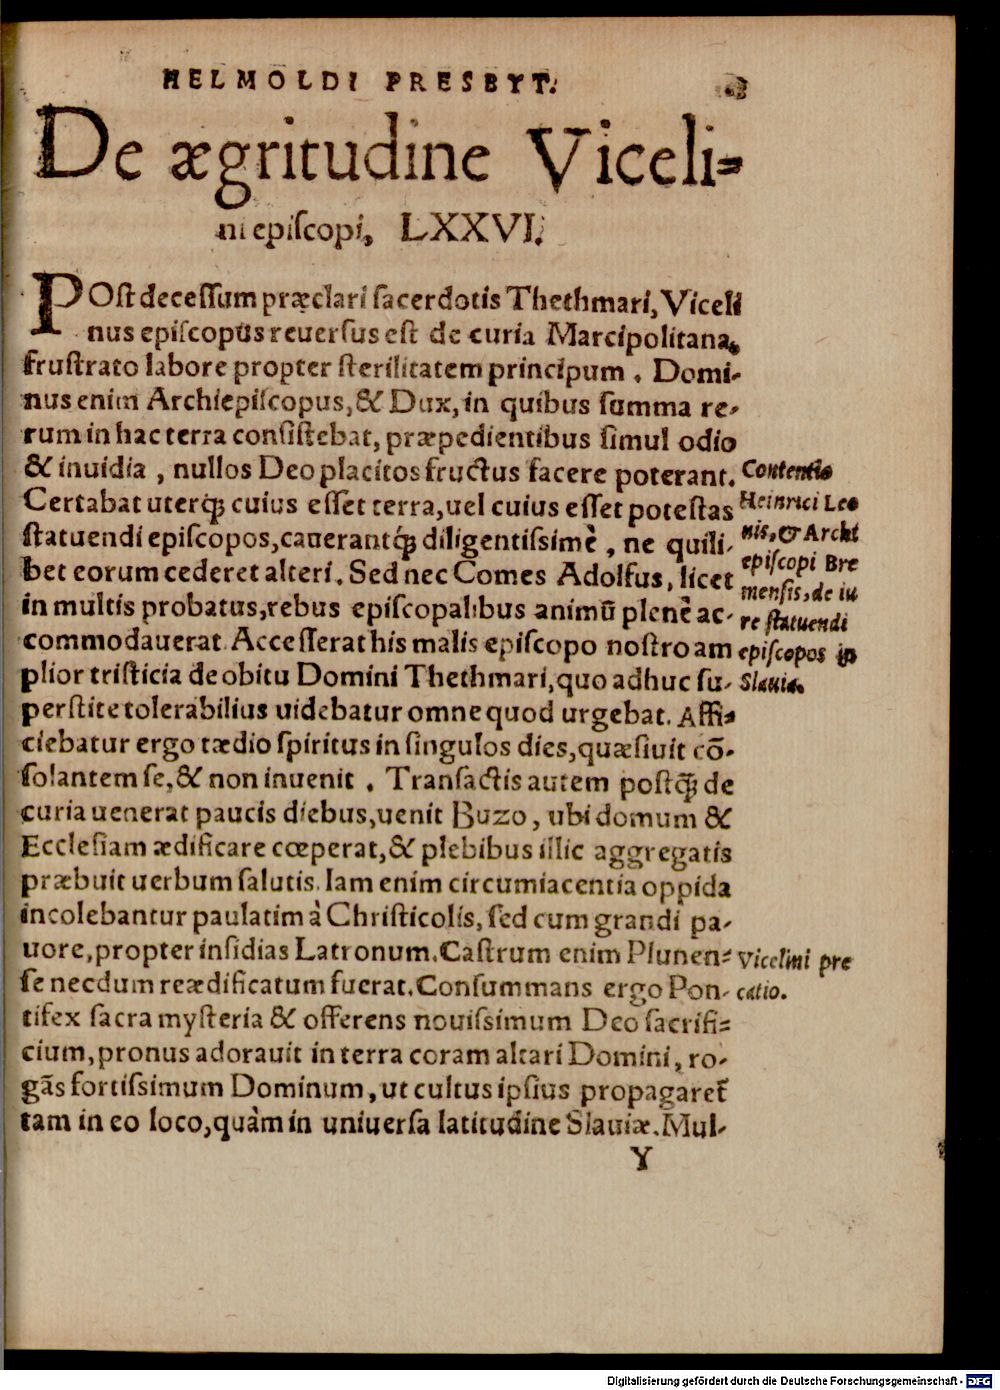 HELMOLDI PRESBYT.
De ægritudine Viceli⸗
ni epiſcopi, LXXVI.
POſt deceſſum præclari ſacerdotis Thethmari, Viceli
nus epiſcopus reuerſus eſt de curia Marcipolitana,
fruſtrato labore propter ſterilitatem principum. Domi⸗
nus enim Archiepiſcopus, & Dux, in quibus ſumma re⸗
rum in hac terra conſiſtebat, præpedientibus ſimul odio
& inuidia, nullos Deo placitos fructus facere poterant.
Certabat uterq́; cuius eſſet terra, uel cuius eſſet poteſtas
ſtatuendi epiſcopos, cauerantq́; diligentiſsimè, ne quili⸗
bet eorum cederet alteri. Sed nec Comes Adolfus, licet
in multis probatus, rebus epiſcopalibus animū plenè ac⸗
commodauerat. Acceſſerat his malis epiſcopo noſtro am
plior triſticia de obitu Domini Thethmari, quo adhuc ſu⸗
perſtite tolerabilius uidebatur omne quod urgebat. Affi⸗
ciebatur ergo tædio ſpiritus in ſingulos dies, quæſiuit cō⸗
ſolantem ſe, & non inuenit. Transactis autem poſtq́; de
curia uenerat paucis diebus, uenit Buzo, ubi domum &
Eccleſiam ædificare cœperat, & plebibus illic aggregatis
præbuit uerbum ſalutis. Iam enim circumiacentia oppida
incolebantur paulatim à Chriſticolis, ſed cum grandi pa⸗
uore, propter inſidias Latronum. Caſtrum enim Plunen⸗
ſe necdum reædificatum fuerat. Conſummans ergo Pon⸗
tifex ſacra myſteria & offerens nouiſsimum Deo ſacrifi⸗
cium, pronus adorauit in terra coram altari Domini, ro⸗
gās fortiſsimum Dominum, ut cultus ipſius propagaret̄
tam in eo loco, quàm in uniuerſa latitudine Slauiæ. Mul⸗
Y
Contentio
Heinrici Leo
nis, & Archi
epiſcopi Bre
menſis, de iu
re ſtatuendi
epiſcopos in
Slauia.
Vicelini pre
catio.
Digitalisierung gefördert durch die Deutsche Forschungsgemeinschaft - DFG